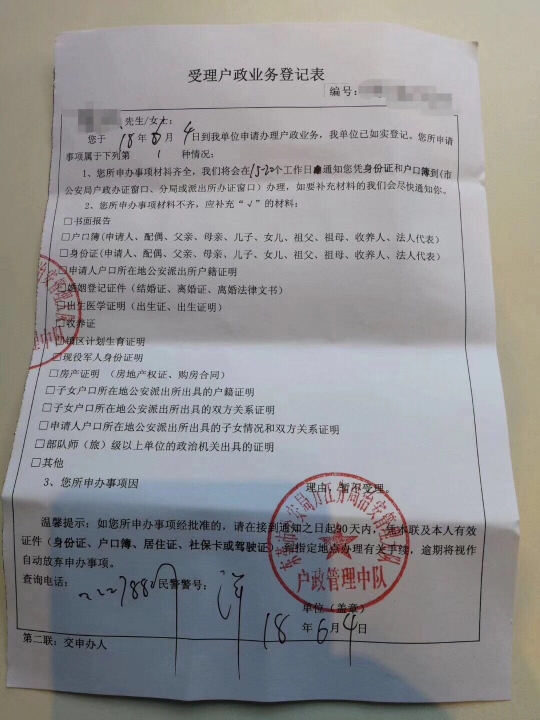 受理户政业务登记表
编号:
先生/女士:
您于 18 年 6 月 4 日到我单位申请办理户政业务，我单位已如实登记。您所申请
事项属于下列第 1 种情况:
1、您所申办事项材料齐全，我们将会在15-20个工作日通知您凭身份证和户口簿到(市
公安局户政办证窗口、分局或派出所办证窗口）办理，如要补充材料的我们会尽快通知你。
2、您所申办事项材料不齐，应补充“√”的材料:
□书面报告
□户口簿(申请人、配偶、父亲、母亲、儿子、女儿、祖父、祖母、收养人、法人代表)
□身份证(申请人、配偶、父亲、母亲、儿子、女儿、祖父、祖母、收养人、法人代表)
□申请人户口所在地公安派出所户籍证明
□婚姻登记证件（结婚证、离婚证、离婚法律文书）
□出生医学证明（出生证、出生证明）
□收养证
□镇区计划生育证明
□现役军人身份证明
□房产证明 （房地产权证、购房合同）
□子女户口所在地公安派出所出具的户籍证明
□子女户口所在地公安派出所出具的双方关系证明
□申请人户口所在地公安派出所出具的子女情况和双方关系证明
□部队师（旅）级以上单位的政治机关出具的证明
□其他
3、您所申办事项因 理由，暂不受理。
温馨提示：如您所申办事项经批准的，请在接到通知之日起90天内，凭本联及本人有效
证件（身份证、户口簿、居住证、社保卡或驾驶证）到指定地点办理有关手续，逾期将视作
自动放弃申办事项。
查询电话: 民警警号:
户政管理中队
单位（盖章）
18 年 6 月 4 日
第二联：交申办人